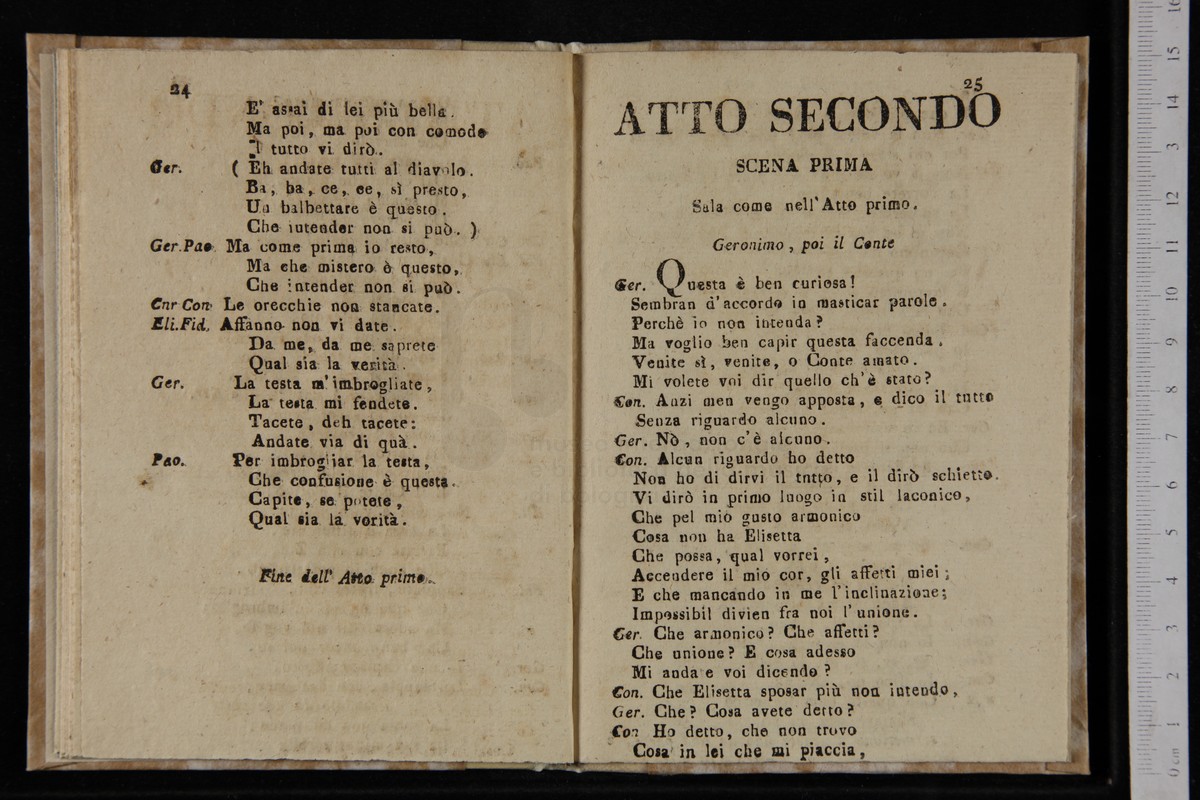 24
E' assai di lei più bella.
Ma poi, ma poi con comodo
Il tutto vi dirò.
Ger. ( Eh andate tutti al diavolo.
Ba, ba, ce, ce, sì presto,
Un balbettare è questo.
Che intender non si può. )
Ger.Pao. Ma come prima io resto,
Ma che mistero è questo,
Che intender non si può.
Car Con Le orecchie non stancate.
Eli.Fid. Affanno non vi date.
Da me, da me saprete
Qual sia la verità.
Ger. La testa m'imbrogliate,
La testa mi fendete.
Tacete, deh tacete:
Andate via di quà.
Pao. Per imbrogliar la testa,
Che confusione è questa.
Capite, se potete,
Qual sia la vorità.
Fine dell' Atto primo.
25
ATTO SECONDO
SCENA PRIMA
Sala come nell'Atto primo.
Geronimo, poi il Conte
Ger. Questa è ben curiosa!
Sembran d'accordo in masticar parole.
Perchè io non intenda?
Ma voglio ben capir questa faccenda.
Venite sì, venite, o Conte amato.
Mi volete voi dir quello ch'è stato?
Con. Anzi men vengo apposta, e dico il tutto
Senza riguardo alcuno.
Ger. Nò, non c'è alcuno.
Con. Alcun riguardo ho detto
Non ho di dirvi il tntto, e il dirò schietto.
Vi dirò in primo luogo in stil laconico,
Che pel mio gusto armonico
Cosa non ha Elisetta
Che possa, qual vorrei,
Accendere il mio cor, gli affetti miei;
E che mancando in me l'inclinazione;
Impossibil divien fra noi l'unione.
Ger. Che armonico? Che affetti?
Che unione? E cosa adesso
Mi anda e voi dicendo?
Con. Che Elisetta sposar più non intendo,
Ger. Che? Cosa avete detto?
Con Ho detto, che non trovo
Cosa in lei che mi piaccia,
0 cm 1 2 3 4 5 6 7 8 9 10 11 12 13 14 15 16